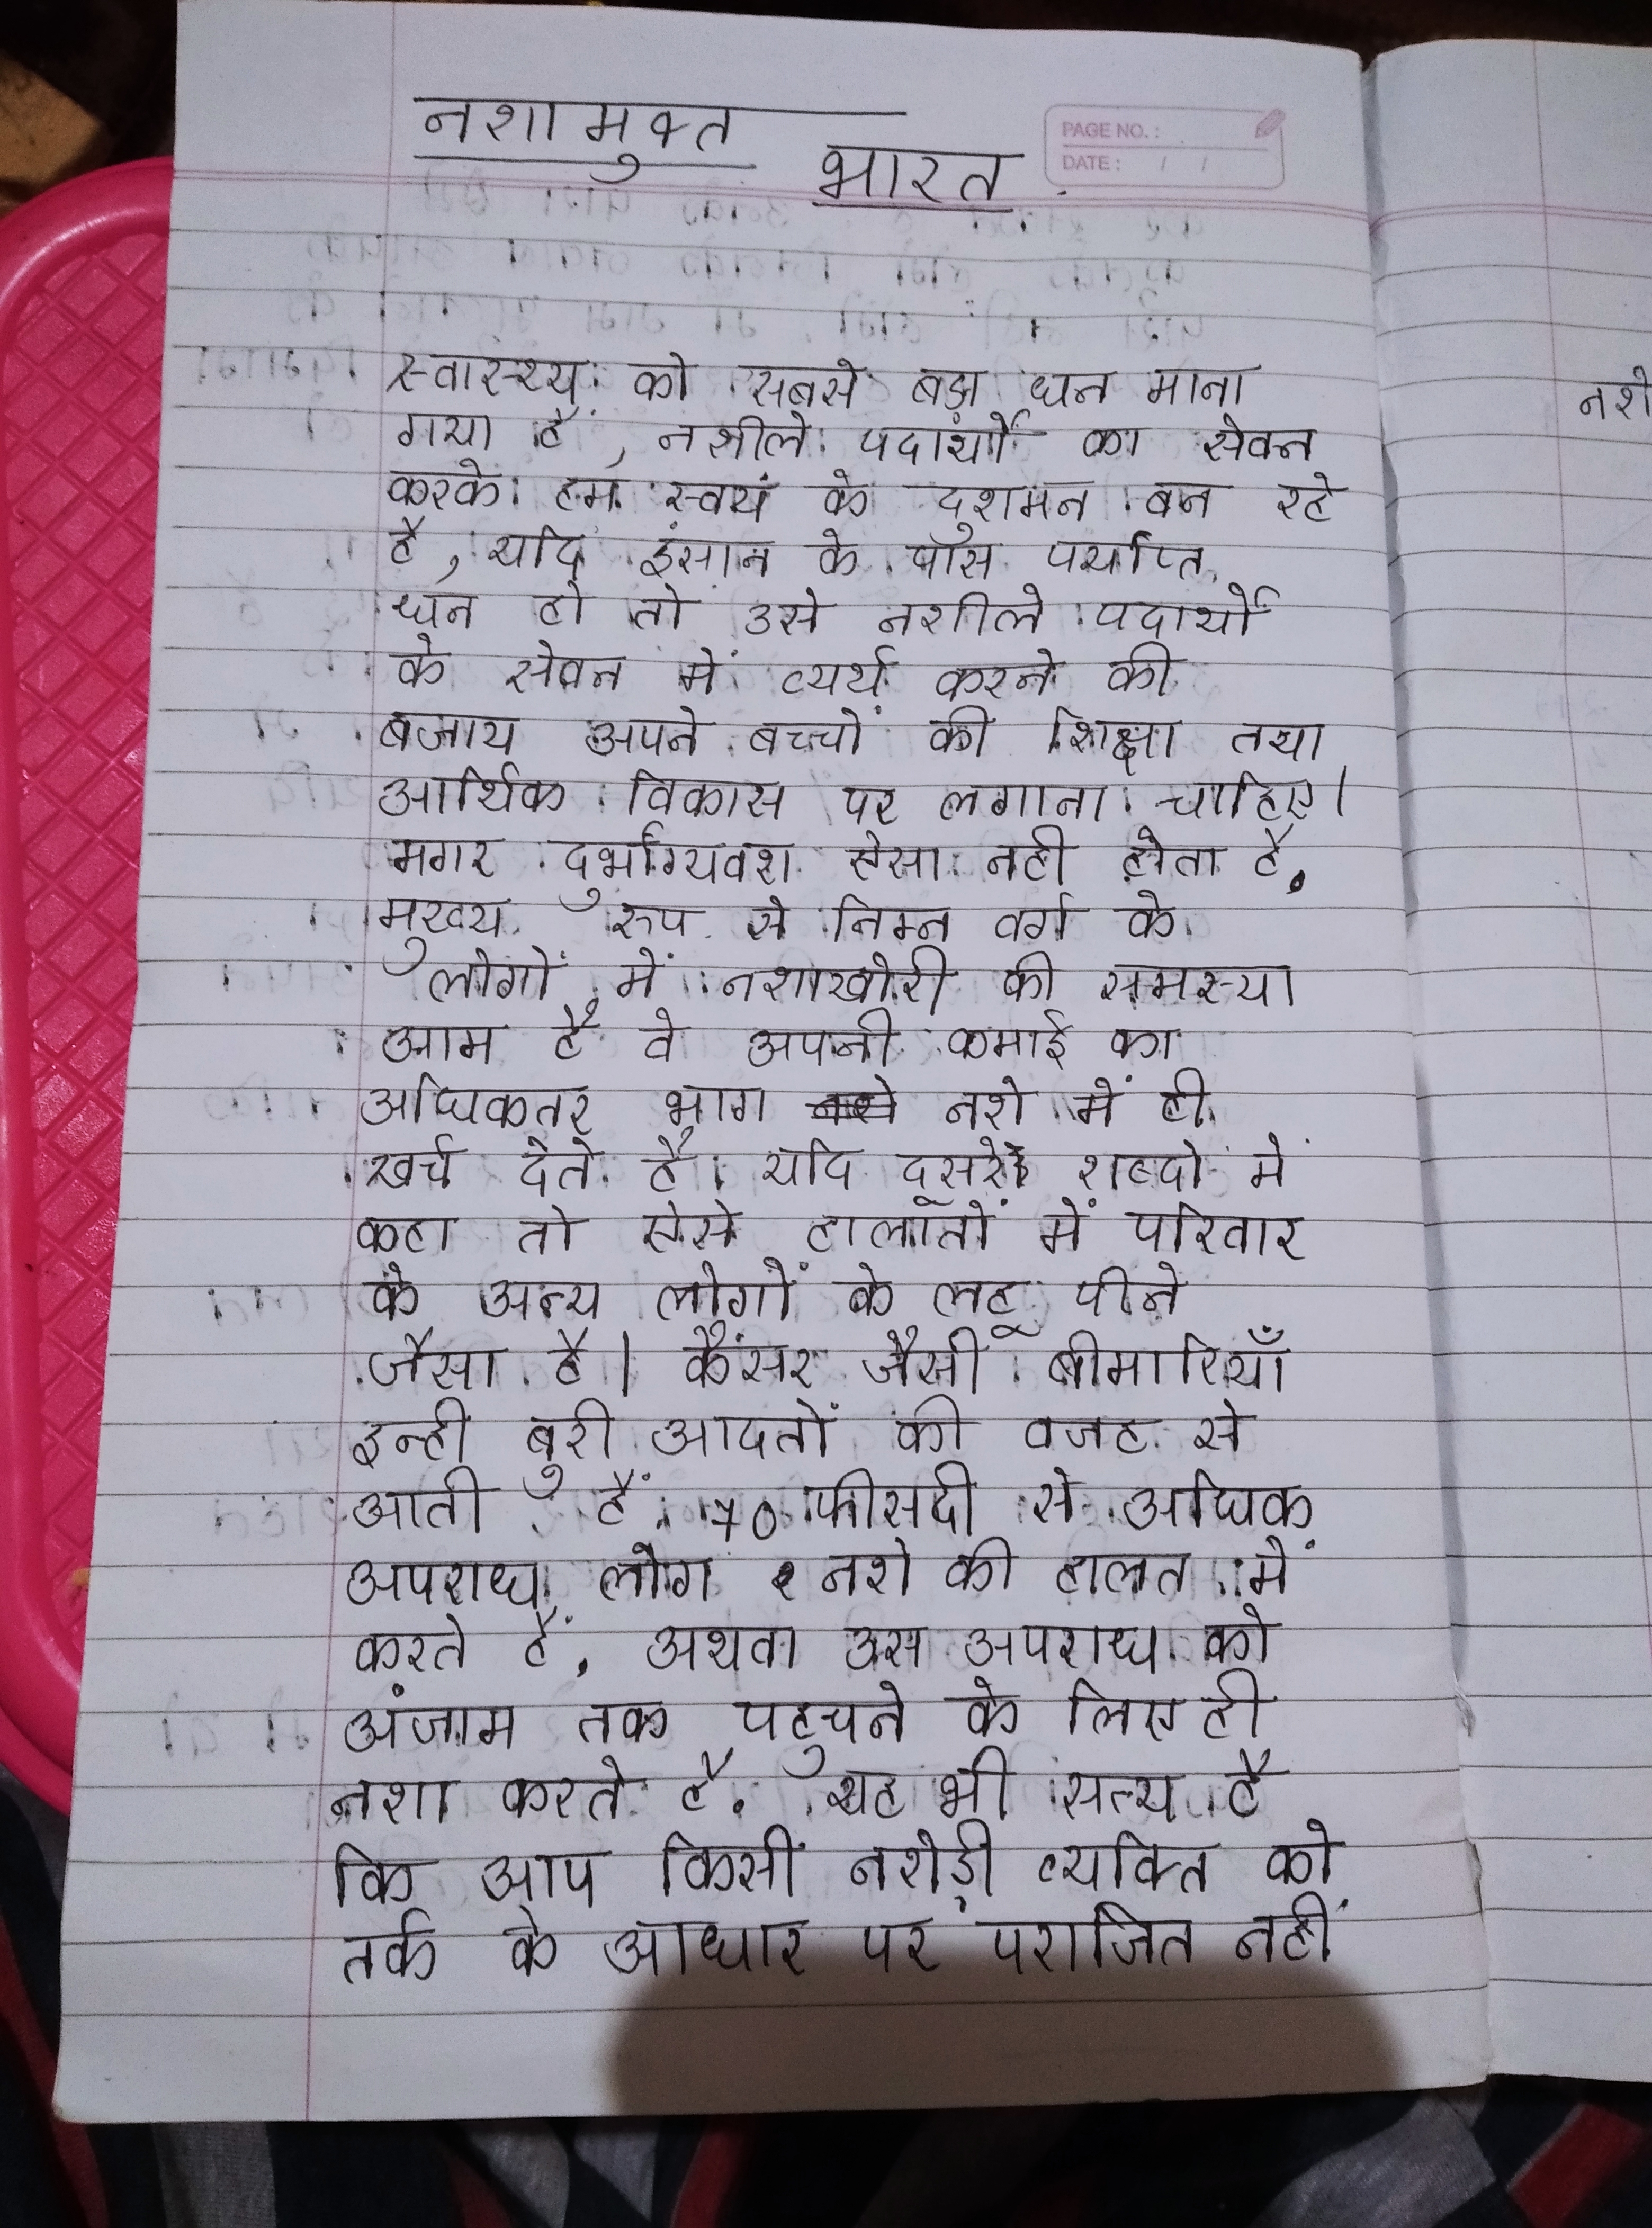 नशा मुक्त भारत
PAGE NO.:
DATE: / /
स्वास्थ्य को सबसे बड़ा धन माना
गया है, नशीले पदार्थों का सेवन
करके हम स्वयं के दुशमन बन रहे
है, यदि इंसान के पास पर्याप्त
धन हो तो उसे नशीले पदार्थो
के सेवन में व्यर्थ करने की
बजाय अपने बच्चों की शिक्षा तथा
आर्थिक विकास पर लगाना चाहिए।
मगर दुर्भाग्यवश ऐसा नही होता है.
मुख्य रुप से निम्न वर्ग के
लोगों में नशाखोरी की समस्या
आम हैं वे अपनी कमाई का
अधिकतर भाग नशे में ही
खर्च देते है। यदि दूसरे शब्दो में
कहा तो ऐसे हालातों में परिवार
के अन्य लोगों के लहू पीने
जैसा है। कैंसर जैसी बीमारियाँ
इन्ही बुरी आदतों की वजह से
आती हैं. 70 फीसदी से अधिक
अपराध लोग नशे की हालत में
करते हैं. अथवा उस अपराध को
अंजाम तक पहुचने के लिए ही
नशा करते है. यह भी सत्य है
कि आप किसी नशेड़ी व्यक्ति को
तर्क के आधार पर पराजित नहीं
नशे